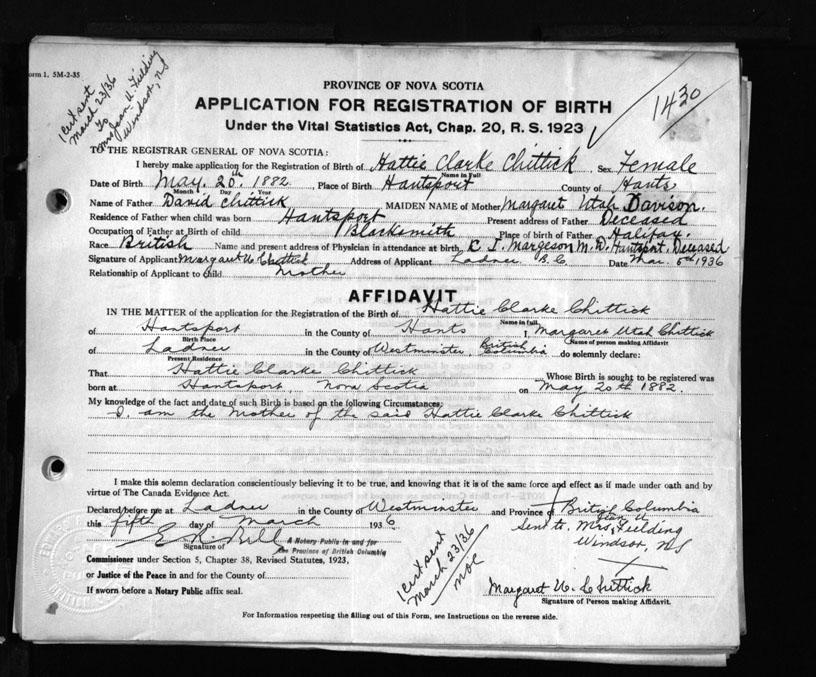 Form 1. 5M-2-35
1 Cert sent
March 23/36
To
Mrs Jean U. Fielding
Windsor, NS
1430
PROVINCE OF NOVA SCOTIA
APPLICATION FOR REGISTRATION OF BIRTH
Under the Vital Statistics Act, Chap. 20, R. S. 1923
TO THE REGISTRAR GENERAL OF NOVA SCOTIA:
I hereby make application for the Registration of Birth of Hattie Clarke Chittick Sex Female
Name in Full
Date of Birth May. 20th. 1882 Place of Birth Hantsport County of Hants
Month Day Year
Name of Father David Chittick MAIDEN NAME of Mother Margaret Utah Davison.
Residence of Father when child was born Hantsport Present address of Father Deceased
Occupation of Father at Birth of child Blacksmith Place of birth of Father Halifax.
Race British Name and present address of Physician in attendance at birth. E. I. Margeson M. D. Hantsport, Deceased
Signature of Applicant Margaret U Chittick Address of Applicant Ladner B. C. Date Mar. 5th 1936
Relationship of Applicant to Child Mother
AFFIDAVIT
IN THE MATTER of the application for the Registration of Birth of Hattie Clarke Chittick
Name in full
of Hantsport in the County of Hants I, Margaret Utah Chittick
Birth Place Name of person making Affidavit
of Ladner in the County of Westminster British Columbia do solemnly declare:
Present Residence
That Hattie Clarke Chittick Whose Birth is sought to be registered was
born at Hantsport, Nova Scotia on May 20th 1882.
My knowledge of the fact and date of such Birth is based on the following Circumstances:
I am the Mother of the said Hattie Clarke Chittick
I make this solemn declaration conscientiously believing it to be true, and knowing that it is of the same force and effect as if made under oath and by
virtue of The Canada Evidence Act.
Declared before me at Ladner in the County of Westminster and Province of British Columbia
this fifth day of March 1936
Sent to Mrs Jean U Fielding
Windsor, NS
Signature of
A Notary Public in and for
the Province of British Columbia
Commissioner under Section 5, Chapter 38, Revised Statutes, 1923,
or Justice of the Peace in and for the County of
If sworn before a Notary Public affix seal.
1 Cert sent
March 23/36
Margaret U. Chittick
Signature of Person making Affidavit.
For Information respecting the filling out of this Form, see Instructions on the reverse side.